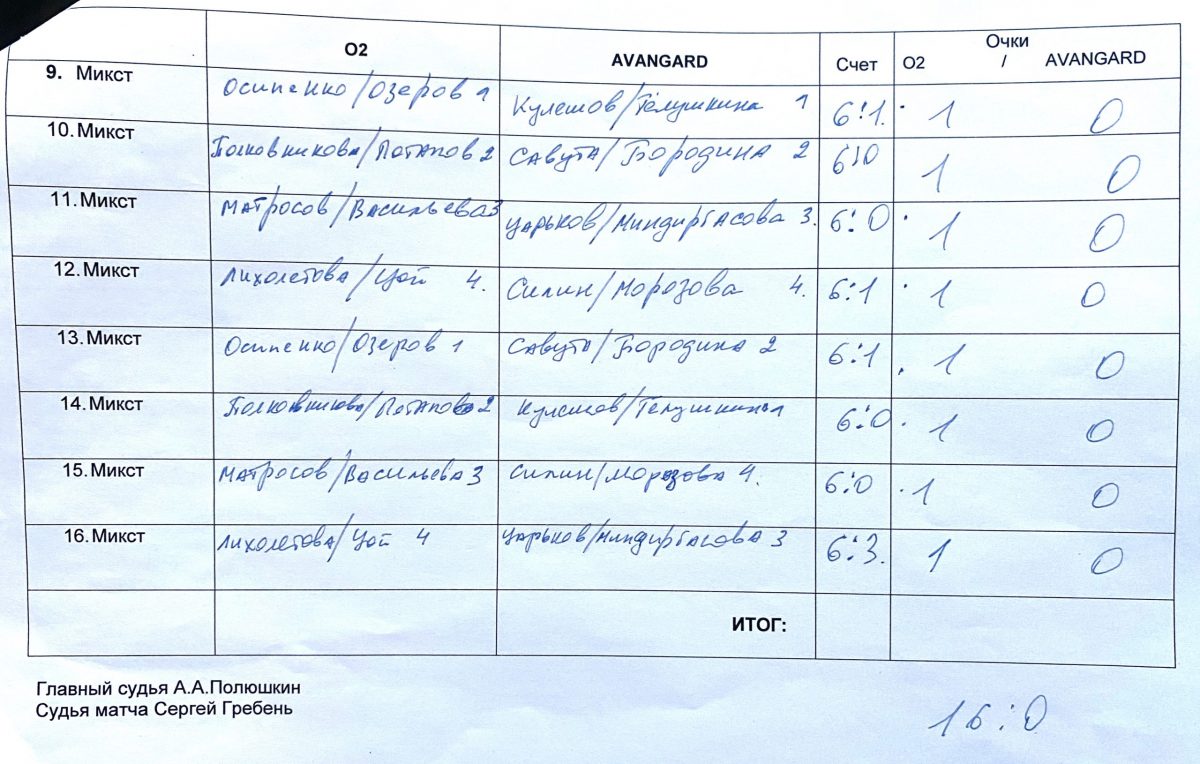 О2 AVANGARD Счет Очки О2 / AVANGARD
9. Микст Осипенко/Озеров 1 Кулешов/Тёлушкина 1 6:1. 1 0
10. Микст Полковникова/Потапов 2 Савута/Бородина 2 6:0 1 0
11. Микст Матросов/Васильева 3 Царьков/Миндиргасова 3. 6:0 1 0
12. Микст Лихолетова/Цой 4. Силин/Морозова 4. 6:1 1 0
13. Микст Осипенко/Озеров 1 Савута/Бородина 2 6:1 1 0
14. Микст Полковникова/Потапов 2 Кулешов/Телушкина 1 6:0 1 0
15. Микст Матросов/Васильева 3 Силин/Морозова 4. 6:0 1 0
16. Микст Лихолетова/Цой 4 Царьков/Миндиргасова 3 6:3. 1 0
ИТОГ:
Главный судья А.А.Полюшкин
Судья матча Сергей Гребень
16:0